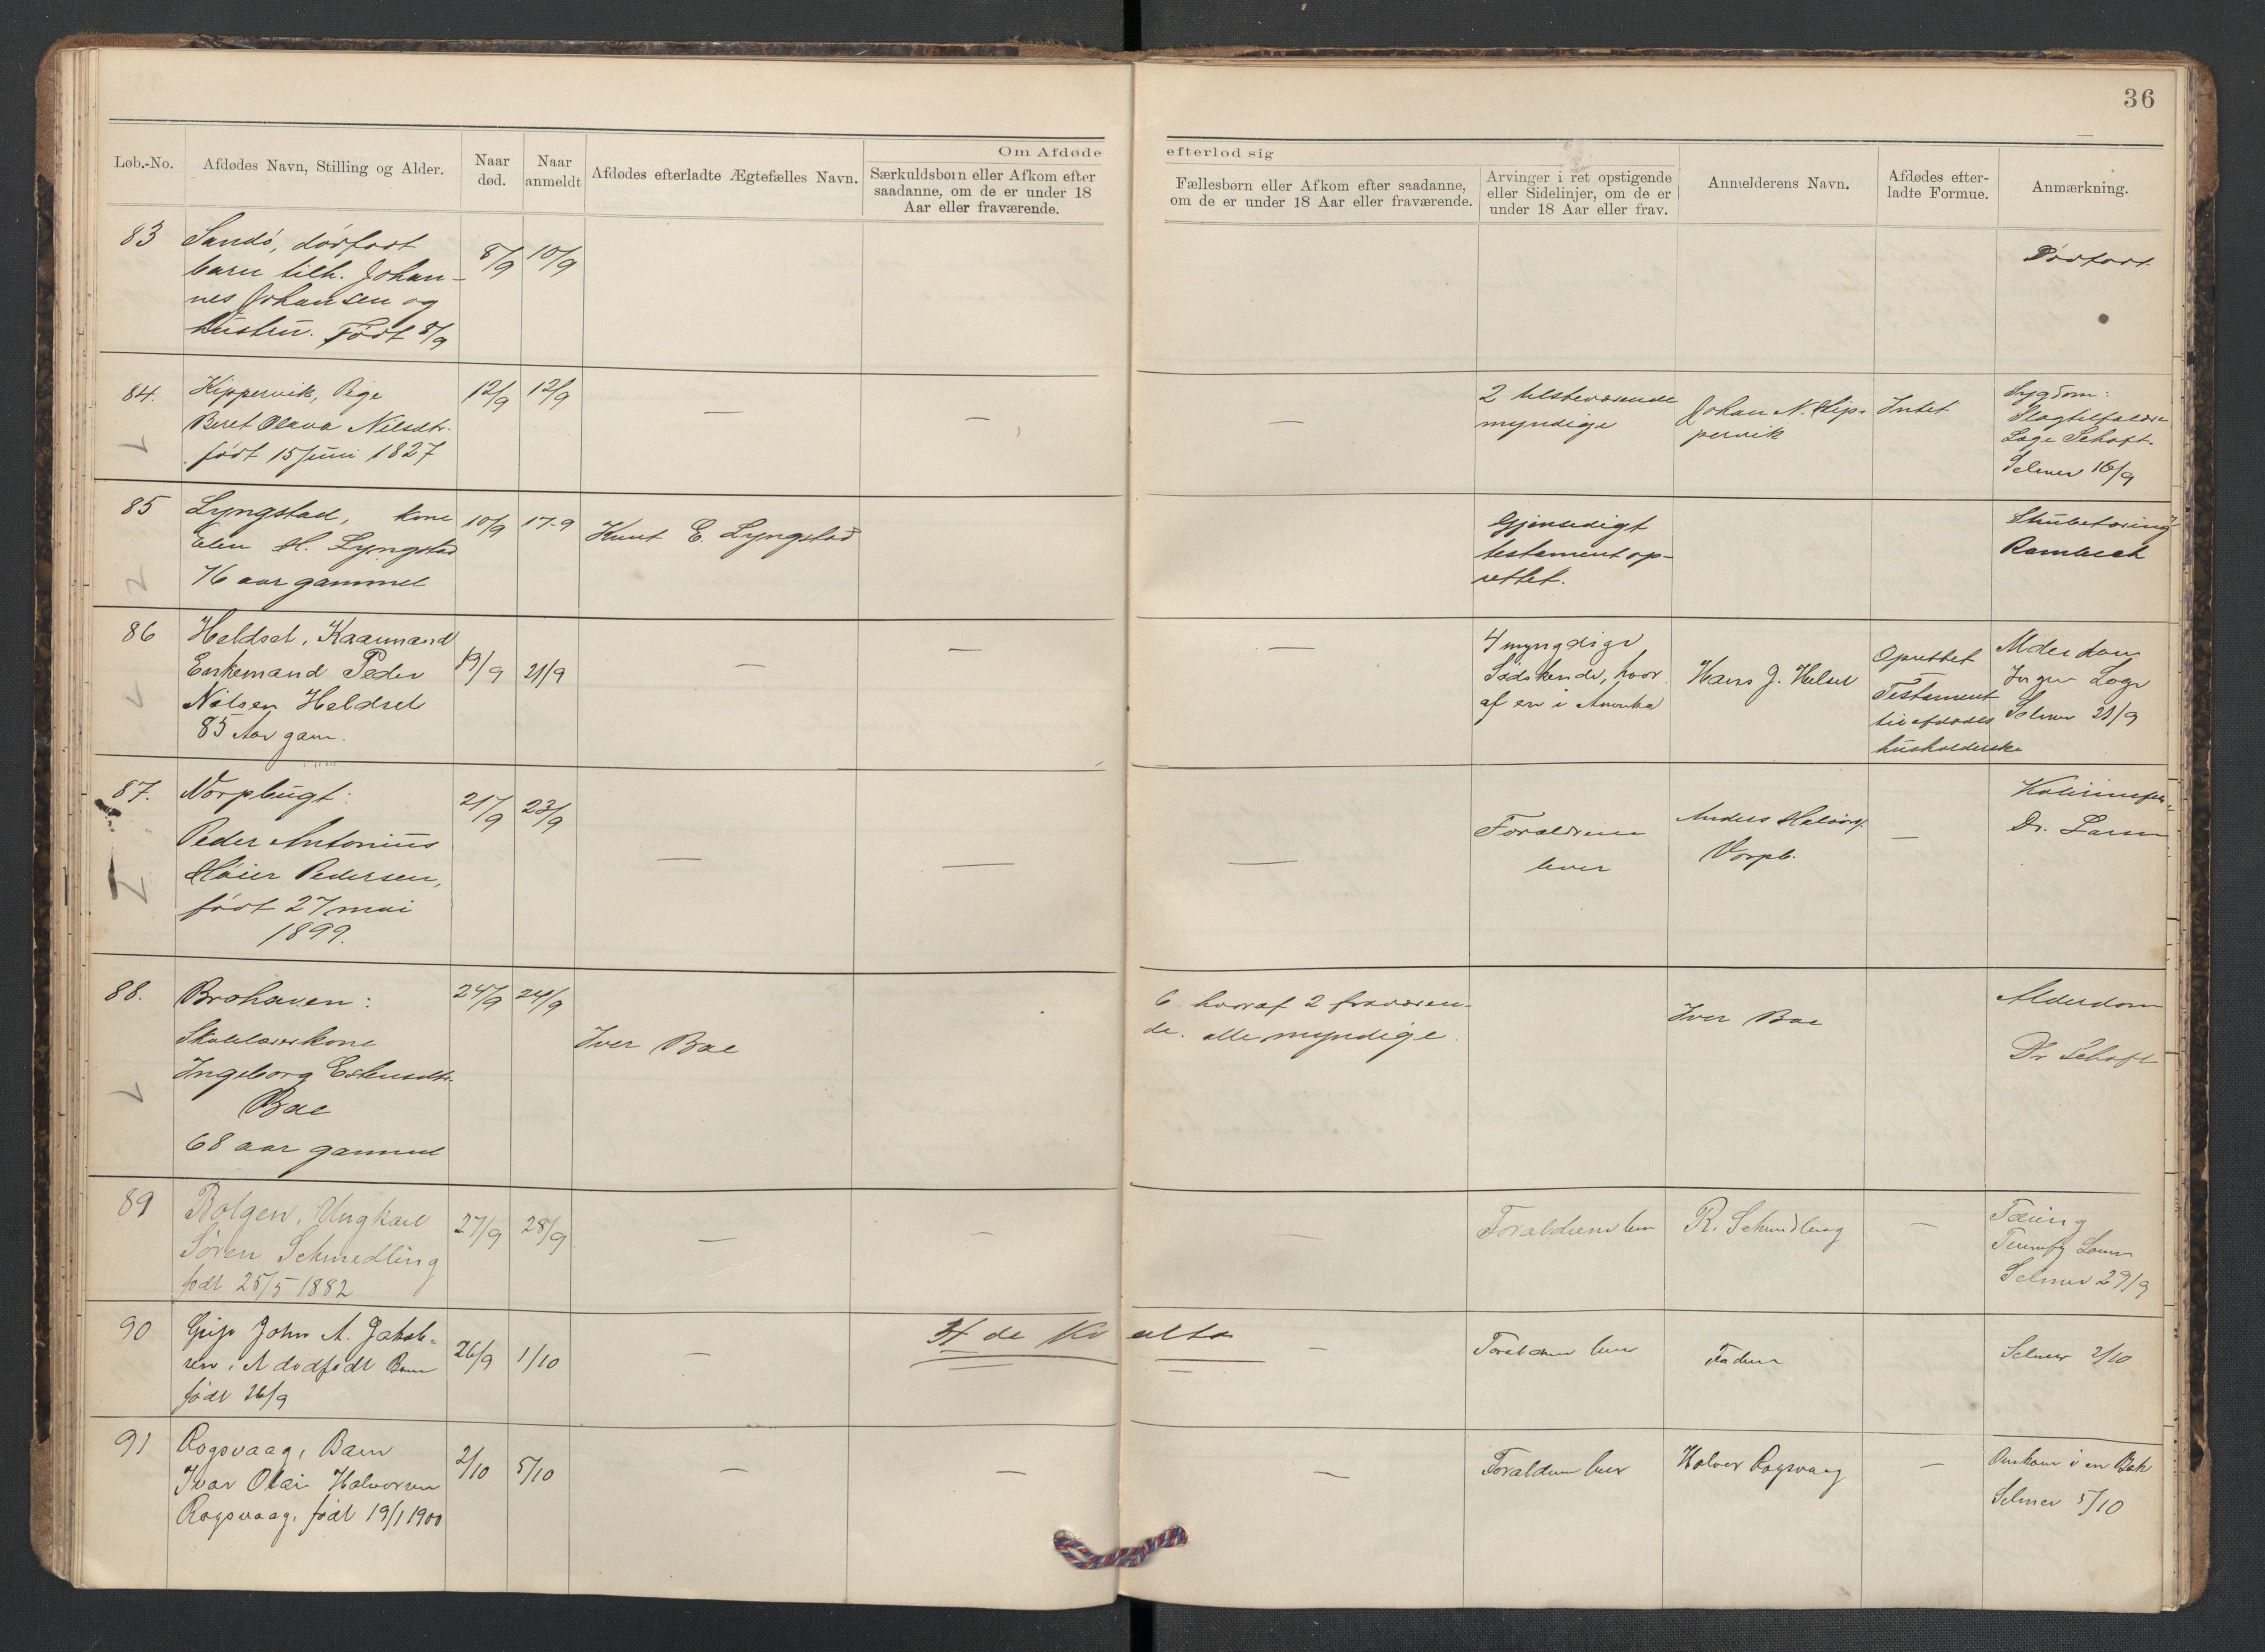 36
Løb.-No.
Afdødes Navn, Stilling og Alder.
Naar
død.
Naar
anmeldt
Afdødes efterladte Ægtefælles Navn.
Om Afdøde
efterlod sig
Særkuldsbørn eller Afkom efter
saadanne, om de er under 18
Aar eller fraværende.
Fællesbørn eller Afkom efter saadanne,
om de er under 18 Aar eller fraværende.
Arvinger i ret opstigende
eller Sidelinjer, om de er
under 18 Aar eller frav.
Anmelderens Navn.
Afdødes efter-
ladte Formue.
Anmærkning.
83
Sandø, dødfødt
barn tilh. Johan-
nes Johansen og
hustru. Født 8/9
8/9
10/9
Dødfødt
84.
Kippervik, Pige
Beret Olava Nilsdtr.
født 15 Juni 1827
12/9
12/9
—
—
—
2 tilstedeværende
myndige
Johan N. Kip-
pervik
Intet
Sygdom:
Slagtilfælde
Læge Schøft.
Selmer 16/9
85
Lyngstad, kone
Elen M. Lyngstad
76 aar gammel
10/9
17-9
Knut E. Lyngstad
Gjensidigt
testament op-
rettet.
Rambech
86
Heldset, Kaarmand
Enkemand Peder
Nilsen Heldset
85 Aar gam.
19/9
21/9
—
—
—
4 myngdige
Sødskende, hvor
af en i Amerika
Hans J. Helset
Oprettet
Testament
til afdødes
husholderske
Alderdom
Ingen Læge
Selmer 21/9
87.
Vorpbugt:
Peder Antonius
Høier Pedersen,
født 27 mai
1899.
21/9
23/9
—
—
—
Forældrene
lever
Anders Halvors.
Vorpb.
—
Dr. Larsen
88.
Brohaven:
Skolelærerkone
Ingeborg
Bae
68 aar gammel
24/9
24/9
Iver Bae
6. hvoraf 2 fraværen-
de. alle myndige.
Iver Bae
Alderdom
Dr Schøft
89
Bolgen, Ungkarl
Søren Schmedling
født 25/5 1882
27/9
28/9
—
—
—
Forældrene lever
R. Schmedling
—
Tæring
Selmer 29/9
90
Grip John A. Jakob-
sen: A dødfødt Barn
født 26/9
26/9
1/10
—
—
Forældrene lever
Faderen
Selmer 2/10
91
Rogsvaag, Barn
Ivar Olai Halvorsen
Rogsvaag, født 19/1 1900
2/10
5/10
—
—
—
Forældrene lever
Halvor Rogsvaag
—
Omkom i en Bæk
Selmer 5/10